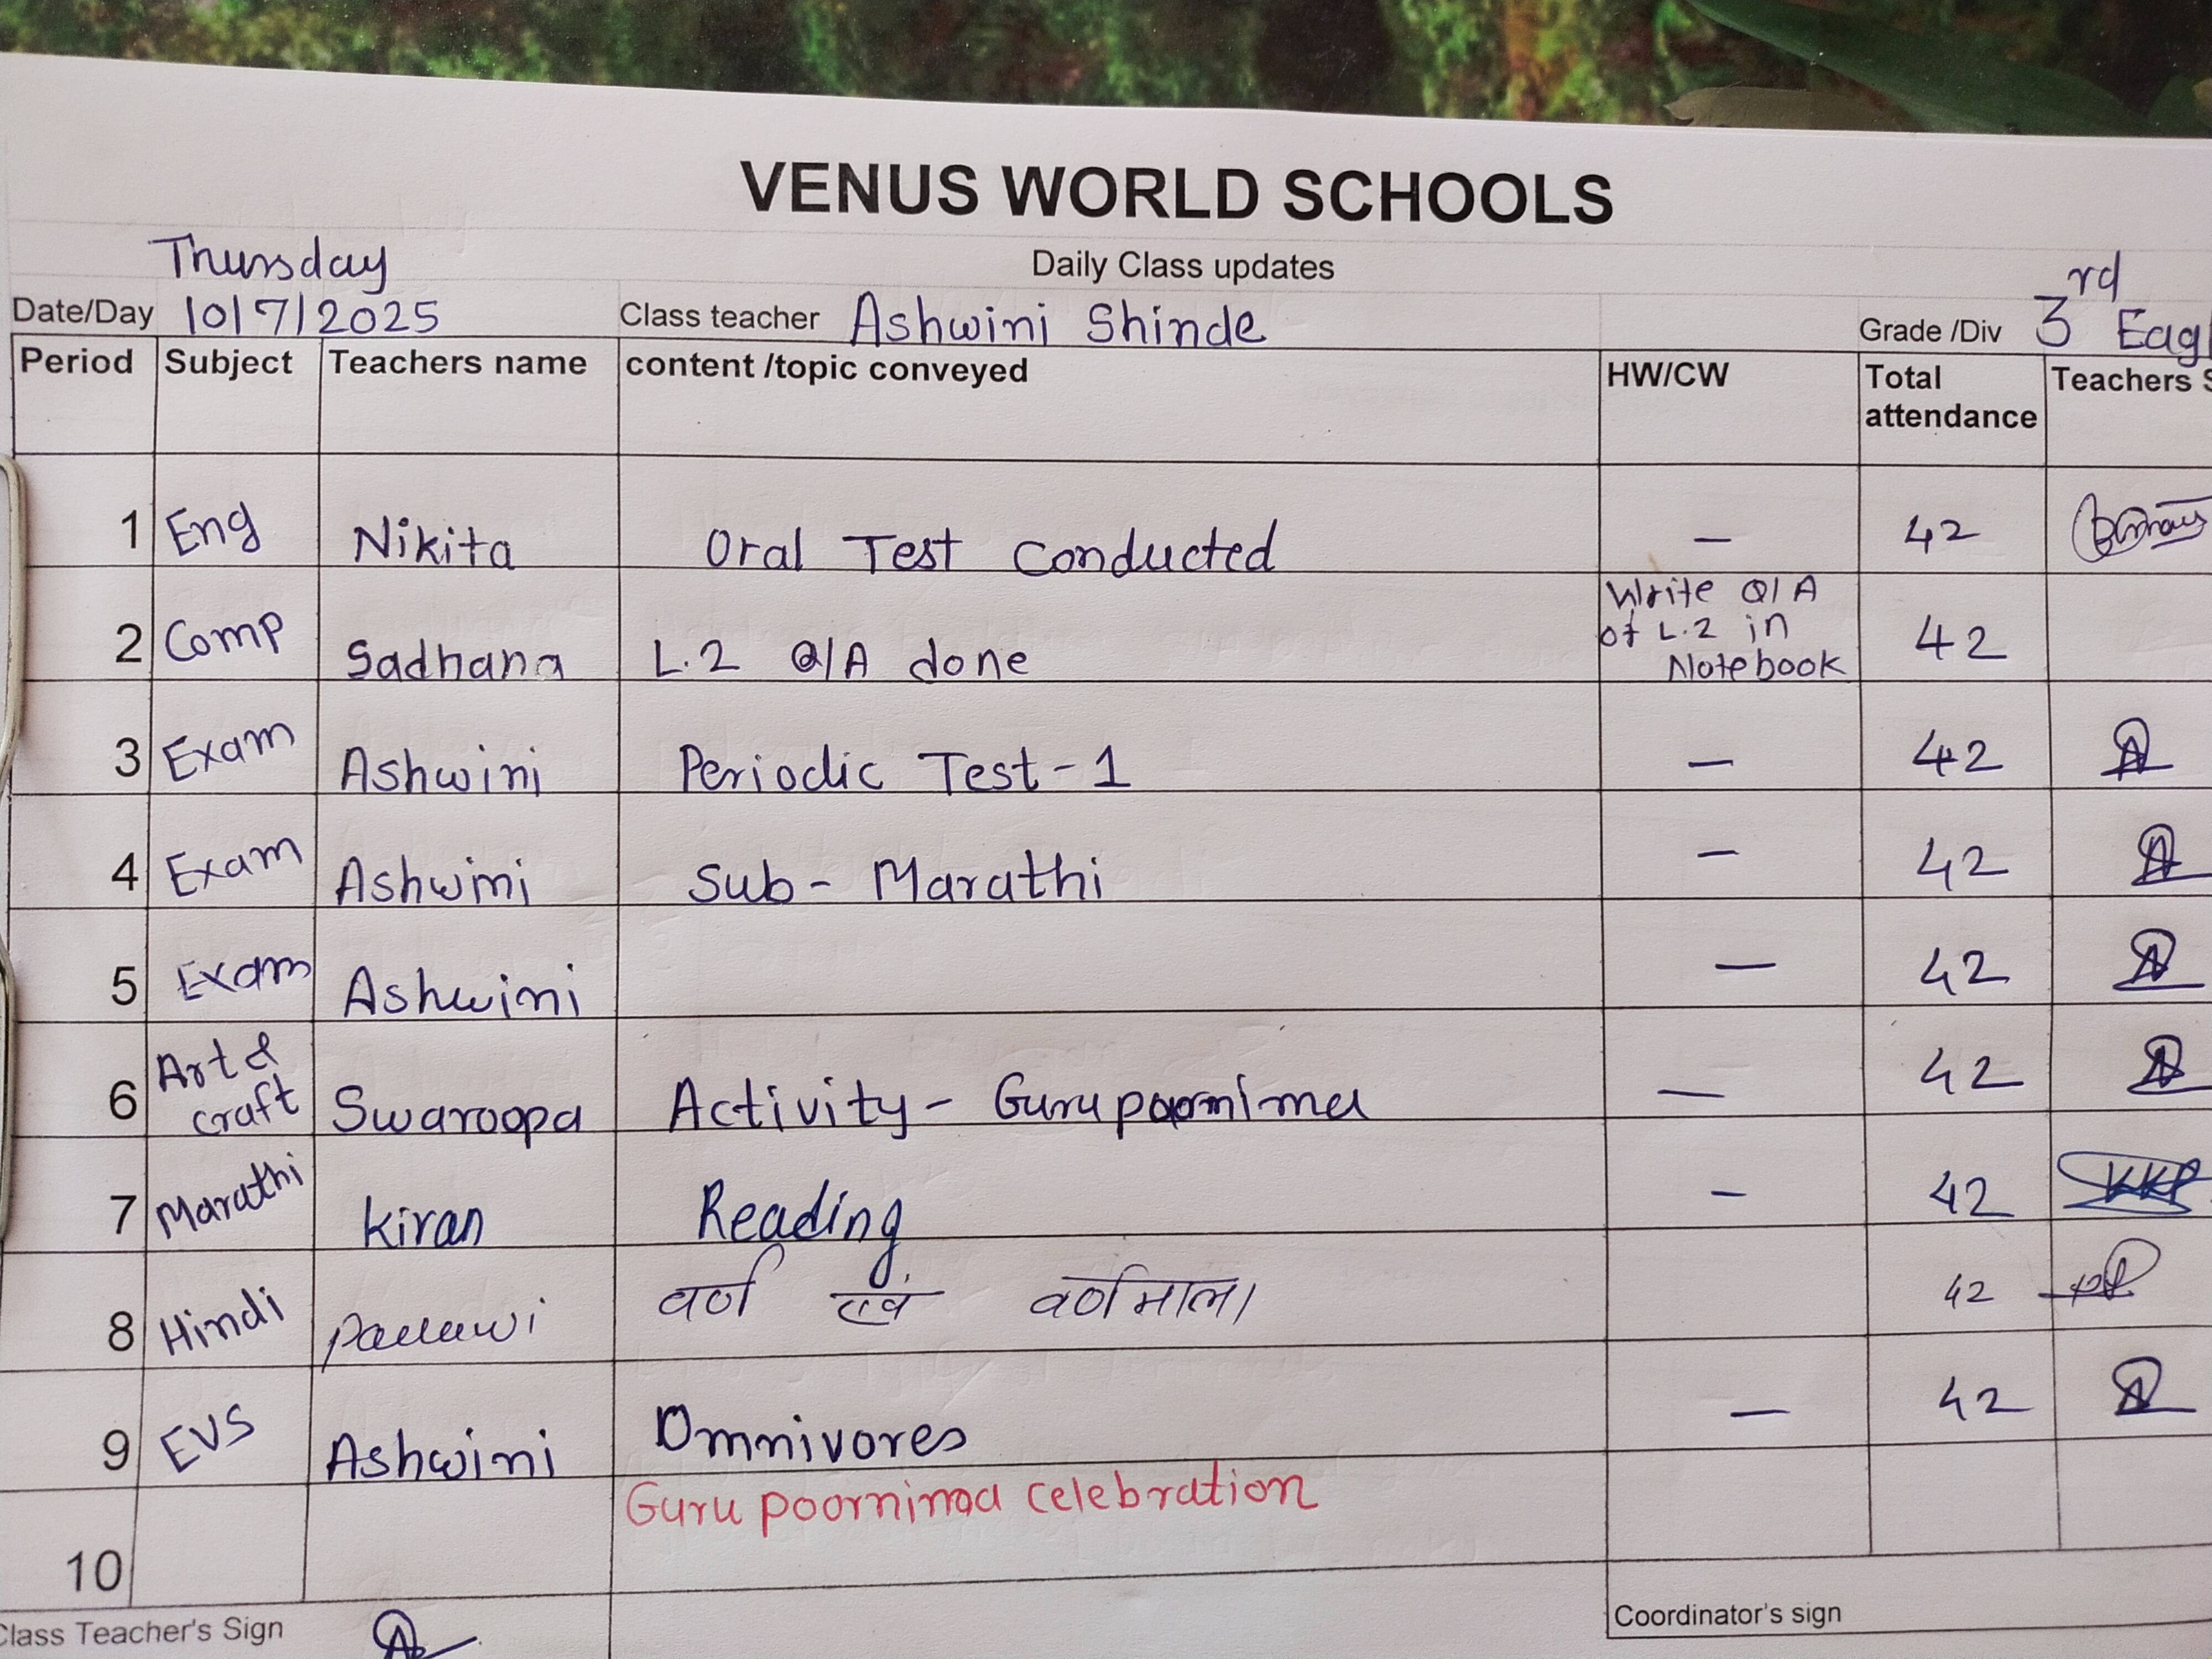 VENUS WORLD SCHOOLS
Daily Class updates
Thursday
Date/Day 10/7/2025 Class teacher Ashwini Shinde Grade /Div 3rd Eagl
Period Subject Teachers name content /topic conveyed HW/CW Total attendance Teachers S
1 Eng Nikita Oral Test Conducted — 42
2 Comp Sadhana L.2 Q/A done Write Q/A of L.2 in Notebook 42
3 Exam Ashwini Periodic Test-1 — 42
4 Exam Ashwini Sub- Marathi — 42
5 Exam Ashwini — 42
6 Art & craft Swaroopa Activity- Guru poornima — 42
7 Marathi Kiran Reading — 42
8 Hindi Pallavi वर्ण एवं वर्णमाला 42
9 EVS Ashwini Omnivores — 42
10 Guru poornima celebration
Class Teacher's Sign Coordinator's sign